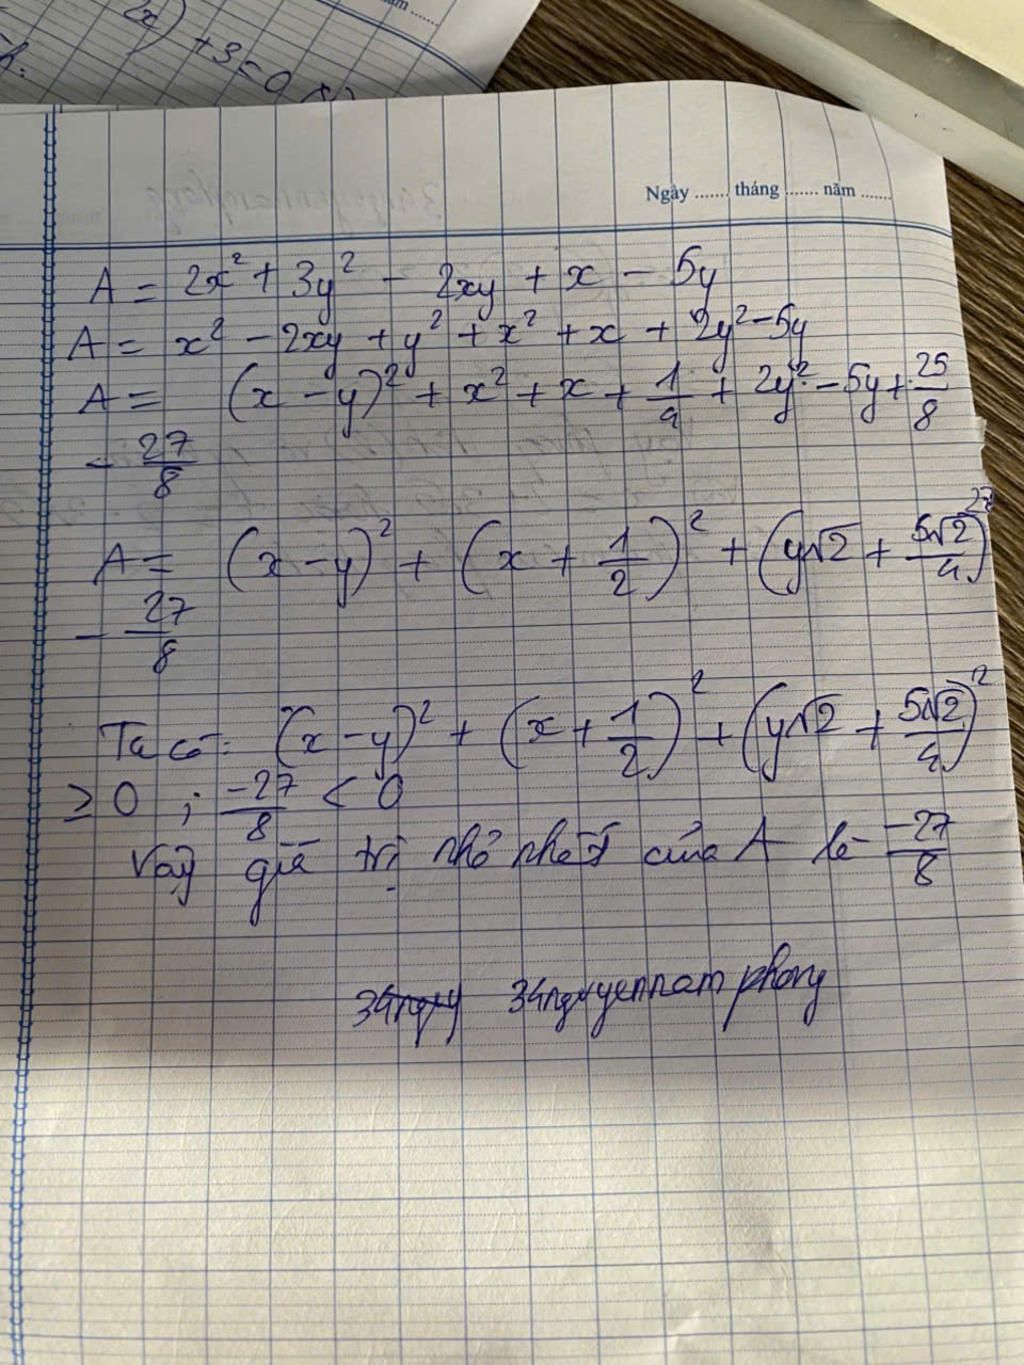 2x)
+ 3 = 0
năm ......
Ngày ...... tháng ...... năm ......
A = 2x² + 3y² - 2xy + x - 5y
A = x² - 2xy + y² + x² + x + 2y² - 5y
A = (x - y)² + x² + x + 1/4 + 2y² - 5y + 25/8
- 27/8
A = (x - y)² + (x + 1/2)² + (y√2 + 5√2/4)²
- 27/8
Ta có: (x - y)² + (x + 1/2)² + (y√2 + 5√2/4)²
≥ 0 ; -27/8 < 0
Vậy giá trị nhỏ nhất của A là -27/8
34nguyennamphong